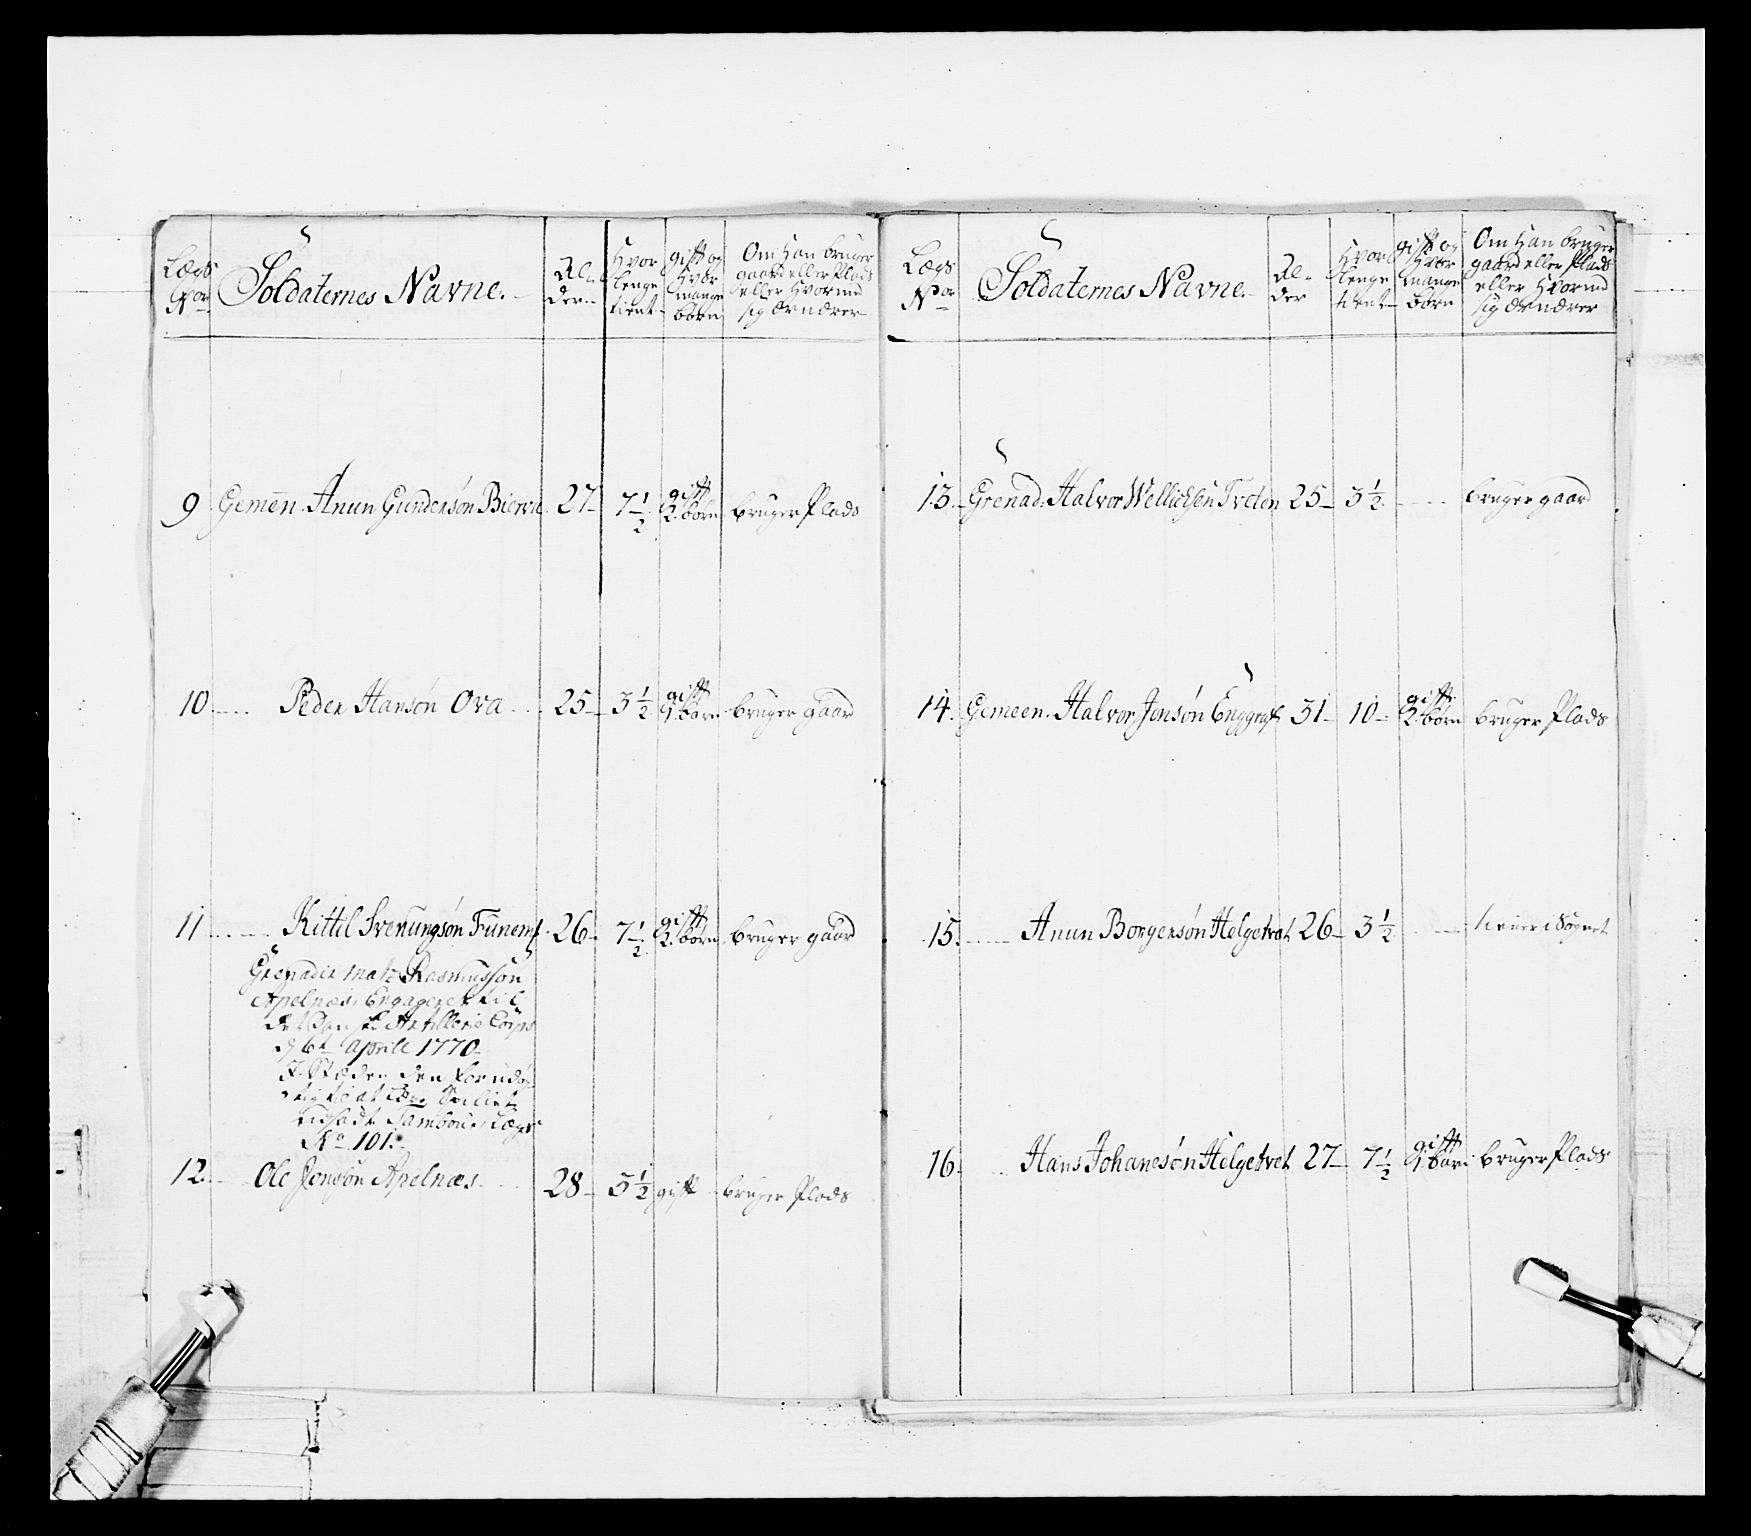 Lægs No
Soldaternes Navne.
Al-
der
Hvor
lenge
tient
gift og
Hvor
mange
børn
Om Han bruger
gaard eller Plads
eller Hvormed
sig Ærnærer
9 Gemen. Anun Gundersøn Bierv 27 7 1/2 gift 2 børn bruger Plads
10 Peder Hansøn Ova 25 3 1/2 gift 1 barn bruger gaard
11 Kittil Svenungsøn 26 7 1/2 gift 2 børn bruger gaard
Grenader Matz Rasmussøn
Apelnæs, Engageret til
det Danske Artillerie Corps
d 6t Aprill 1770
I Stæden den
at
Tambour, Lægs
No 101.
12. Ole Jonsøn Apelnæs 28 3 1/2 gift bruger Plads
Lægs No
Soldaternes Navne.
Al-
der
Hvor
lenge
tient
gift og
Hvor
mange
børn
Om Han bruger
gaard eller Plads
eller Hvormed
sig Ærnærer
13. Grenad. Halvor Tveten 25 3 1/2 bruger gaard
14. Gemeen. Halvor Jonsøn Enggraf 31 10 gift 2 børn bruger Plads
15. Anun Borgersøn Helgetvet 26 3 1/2 tiener i Sognet
16. Hans Johanesøn Helgetvet 27 7 1/2 gift 1 barn bruger Plads